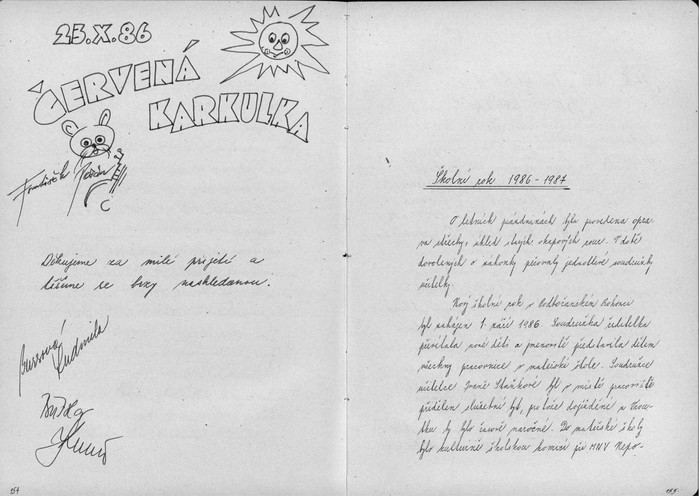 23.X.86
ČERVENÁ
KARKULKA
František
Děkujeme za milé přijetí a
těšíme se brzy naskledanou.
Ludmila
154
Školní rok 1986-1987
O letních prázdninách byla provedena opra-
va střechy, úklid okapových V době
dovolených o zahradu pečovaly jednotlivé soudružky
učitelky.
Nový školní rok v
byl zahájen 1. září 1986. Soudružka ředitelka
přivítala nové děti a jmenovitě představila dětem
všechny pracovnice v mateřské škole. Soudružce
učitelce Ivaně Staňkové byl v místě pracoviště
přidělen služební byt, protože dojíždění z
by bylo časově náročné. Do mateřské školy
bylo kulturně školskou komisí při MNV Nepo-
155